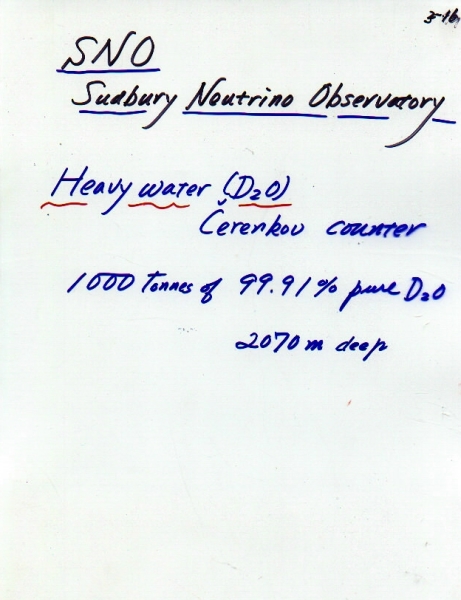 3-16
SNO
Sudbury Neutrino Observatory
Heavy water (D₂O)
Čerenkov counter
1000 Tonnes of 99.91% pure D₂O
2070 m deep